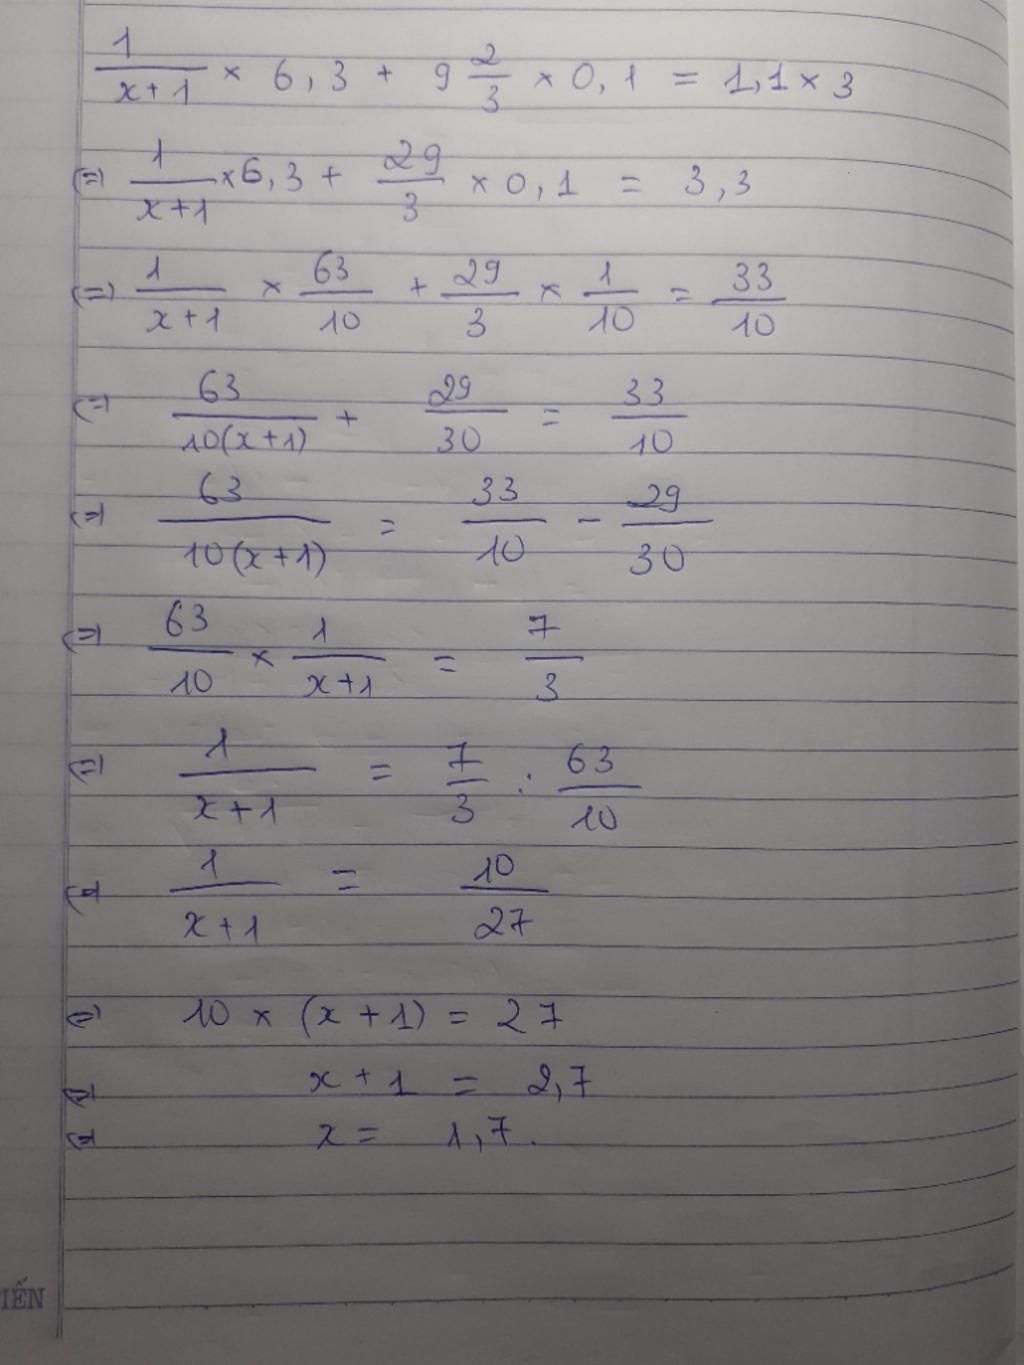 1/(x+1) × 6,3 + 9 2/3 × 0,1 = 1,1 × 3
(=) 1/(x+1) × 6,3 + 29/3 × 0,1 = 3,3
(=) 1/(x+1) × 63/10 + 29/3 × 1/10 = 33/10
(=) 63/10(x+1) + 29/30 = 33/10
(=) 63/10(x+1) = 33/10 - 29/30
(=) 63/10 × 1/(x+1) = 7/3
(=) 1/(x+1) = 7/3 : 63/10
(=) 1/(x+1) = 10/27
(=) 10 × (x+1) = 27
(=) x + 1 = 2,7
(=) x = 1,7.
IẾN